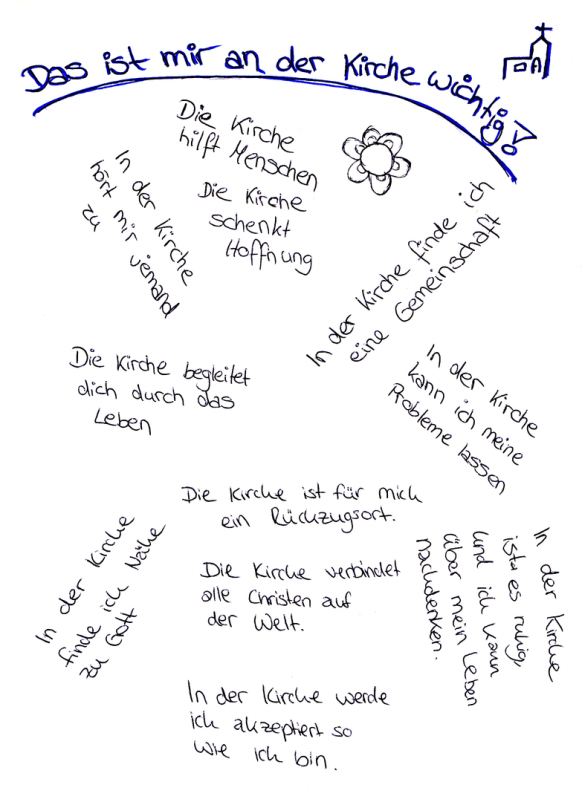 Das ist mir an der Kirche wichtig!
Die Kirche
hilft Menschen
Die Kirche
schenkt
Hoffnung
In der Kirche
hört mir jemand
zu
In der Kirche finde ich
eine Gemeinschaft
Die Kirche begleitet
dich durch das
Leben
In der Kirche
kann ich meine
Probleme lassen
Die Kirche ist für mich
ein Rückzugsort.
In der Kirche
finde ich Nähe
zu Gott
Die Kirche verbindet
alle Christen auf
der Welt.
In der Kirche
ist es ruhig,
und ich kann
über mein Leben
nachdenken.
In der Kirche werde
ich akzeptiert so
wie ich bin.